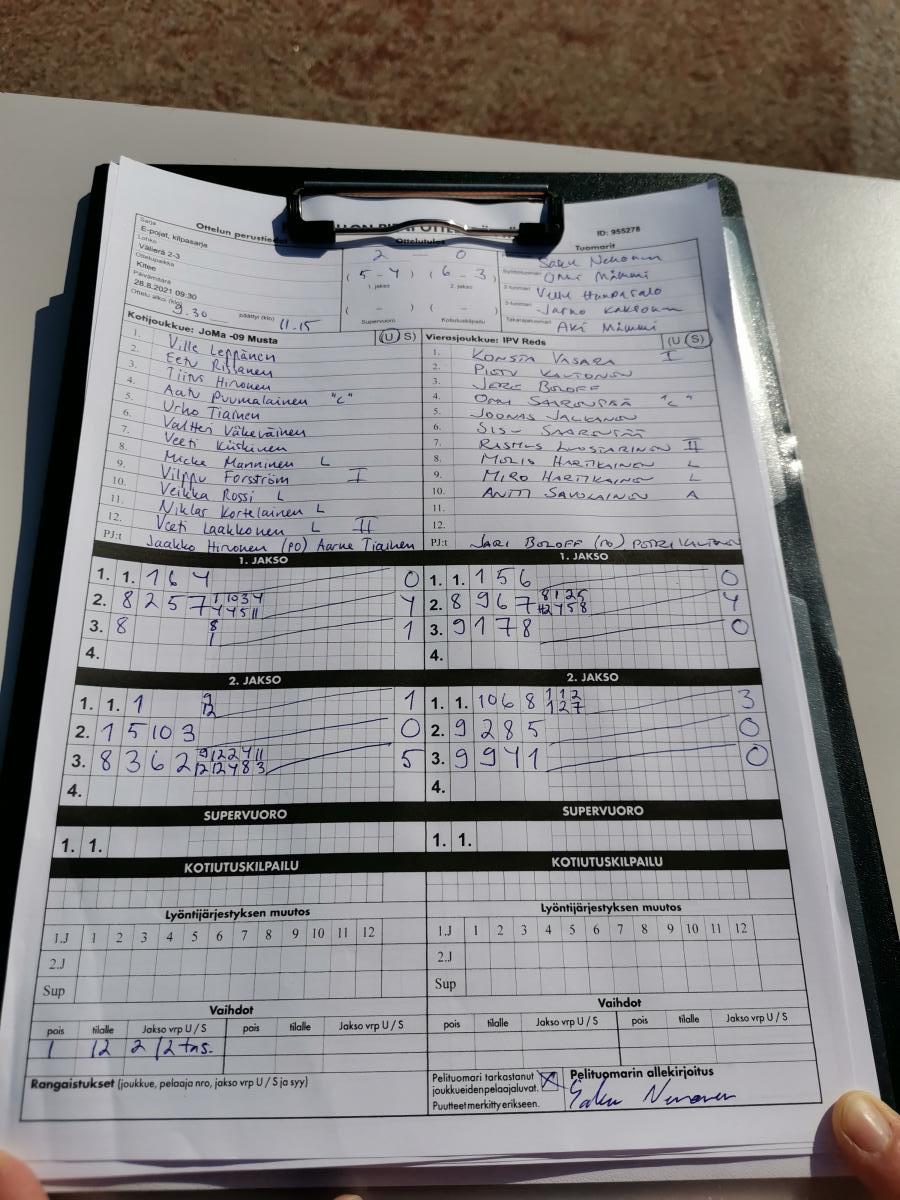 Ottelun perustiedot
ID: 955278
Sarja
E-pojat, kilpasarja
Lohko
Välierä 2-3
Ottelupaikka
Kitee
Päivämäärä
28.8.2021 09:30
Ottelu alkoi (klo) 9.30 päättyi (klo) 11.15
Ottelutulos
2 - 0
( 5 - 4 ) ( 6 - 3 )
1. jakso 2. jakso
( - ) ( - )
Supervuoro Kotiutuskilpailu
Tuomarit
Saku Nenonen
Onni Mämmi
Ville
Jarno
Aki Mämmi
Kotijoukkue: JoMa -09 Musta (U S)
1. Ville Leppänen
2. Eetu Rissanen
3. Tiitus Hirvonen
4. Aatu Puumalainen "C"
5. Urho Tiainen
6. Valtteri Väkeväinen
7. Veeti Kiiskinen
8. Micke Manninen L
9. Vilppu Forsström I
10. Veikka Rossi L
11. Niklas Kortelainen L
12. Veeti Laakkonen L II
PJ:t Jaakko Hirvonen (PO) Aarne Tiainen
Vierasjoukkue: IPV Reds (U S)
1. KONSTA VASARA I
2.
3. BOLOFF
4. "C"
5. JOONAS JALKANEN
6. SISU
7. RASMUS II
8. HARTIKAINEN L
9. MIRO HARTIKAINEN L
10. ANTTI SAVOLAINEN A
11.
12.
PJ:t JARI BOLOFF (PO)
1. JAKSO
1. 1. 1 6 4 0
2. 8 2 5 7 1 10 3 4 4
4 4 5 11
3. 8 8 1
1
4.
1. JAKSO
1. 1. 1 5 6 0
2. 8 9 6 7 8 1 2 5 4
2 4 5 8
3. 9 1 7 8 0
4.
2. JAKSO
1. 1. 1 9 1
12
2. 1 5 10 3 0
3. 8 3 6 2 9 12 2 4 11 5
12 12 4 8 3
4.
2. JAKSO
1. 1. 10 6 8 1 1 2 3
1 2 7
2. 9 2 8 5 0
3. 9 9 4 1 0
4.
SUPERVUORO
1. 1.
SUPERVUORO
1. 1.
KOTIUTUSKILPAILU
KOTIUTUSKILPAILU
Lyöntijärjestyksen muutos
1.J 1 2 3 4 5 6 7 8 9 10 11 12
2.J
Sup
Lyöntijärjestyksen muutos
1.J 1 2 3 4 5 6 7 8 9 10 11 12
2.J
Sup
Vaihdot
pois tilalle Jakso vrp U / S pois tilalle Jakso vrp U / S
1 12 2 /2 tas.
Vaihdot
pois tilalle Jakso vrp U / S pois tilalle Jakso vrp U / S
Rangaistukset (joukkue, pelaaja nro, jakso vrp U / S ja syy)
Pelituomari tarkastanut
joukkueiden pelaajaluvat.
Puutteet merkitty erikseen.
Pelituomarin allekirjoitus
Saku Nenonen